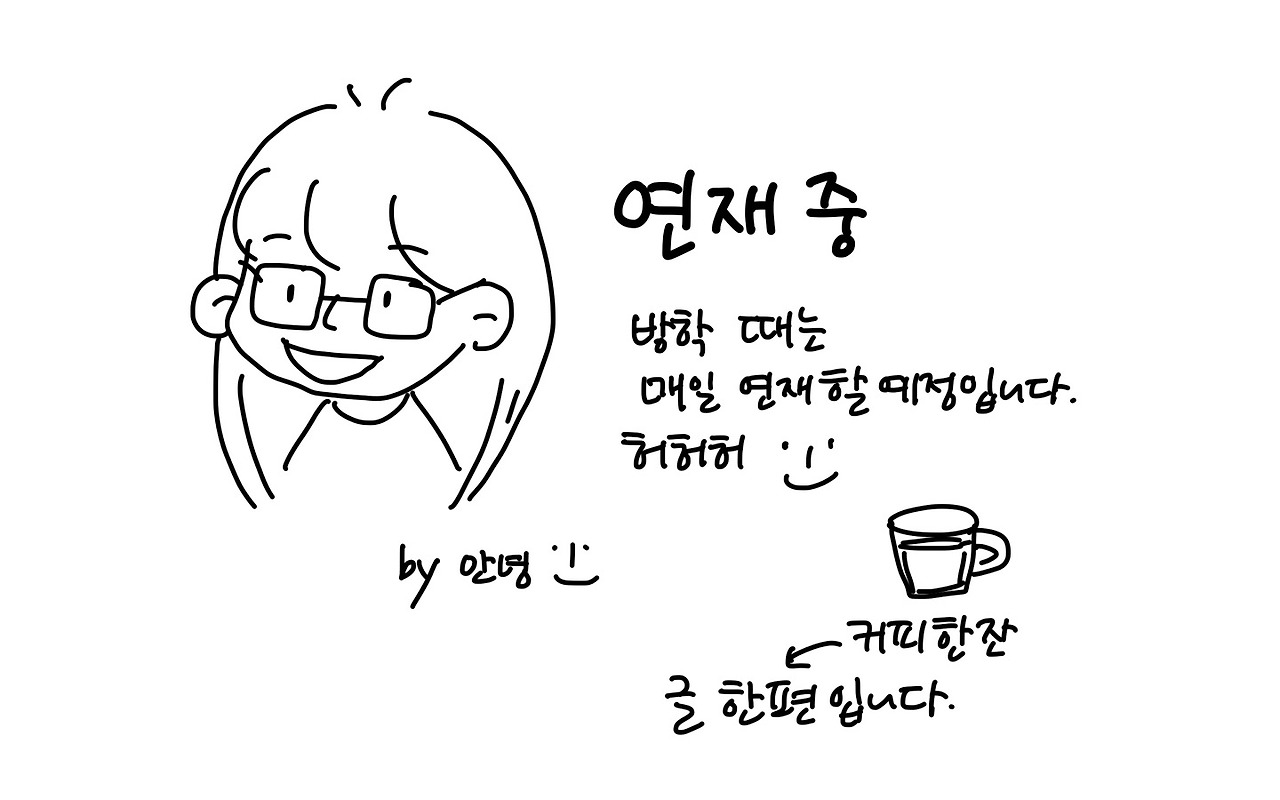 연재 중
방학 때는
매일 연재할 예정입니다.
허허허
by 안녕
커피 한 잔
글 한 편입니다.